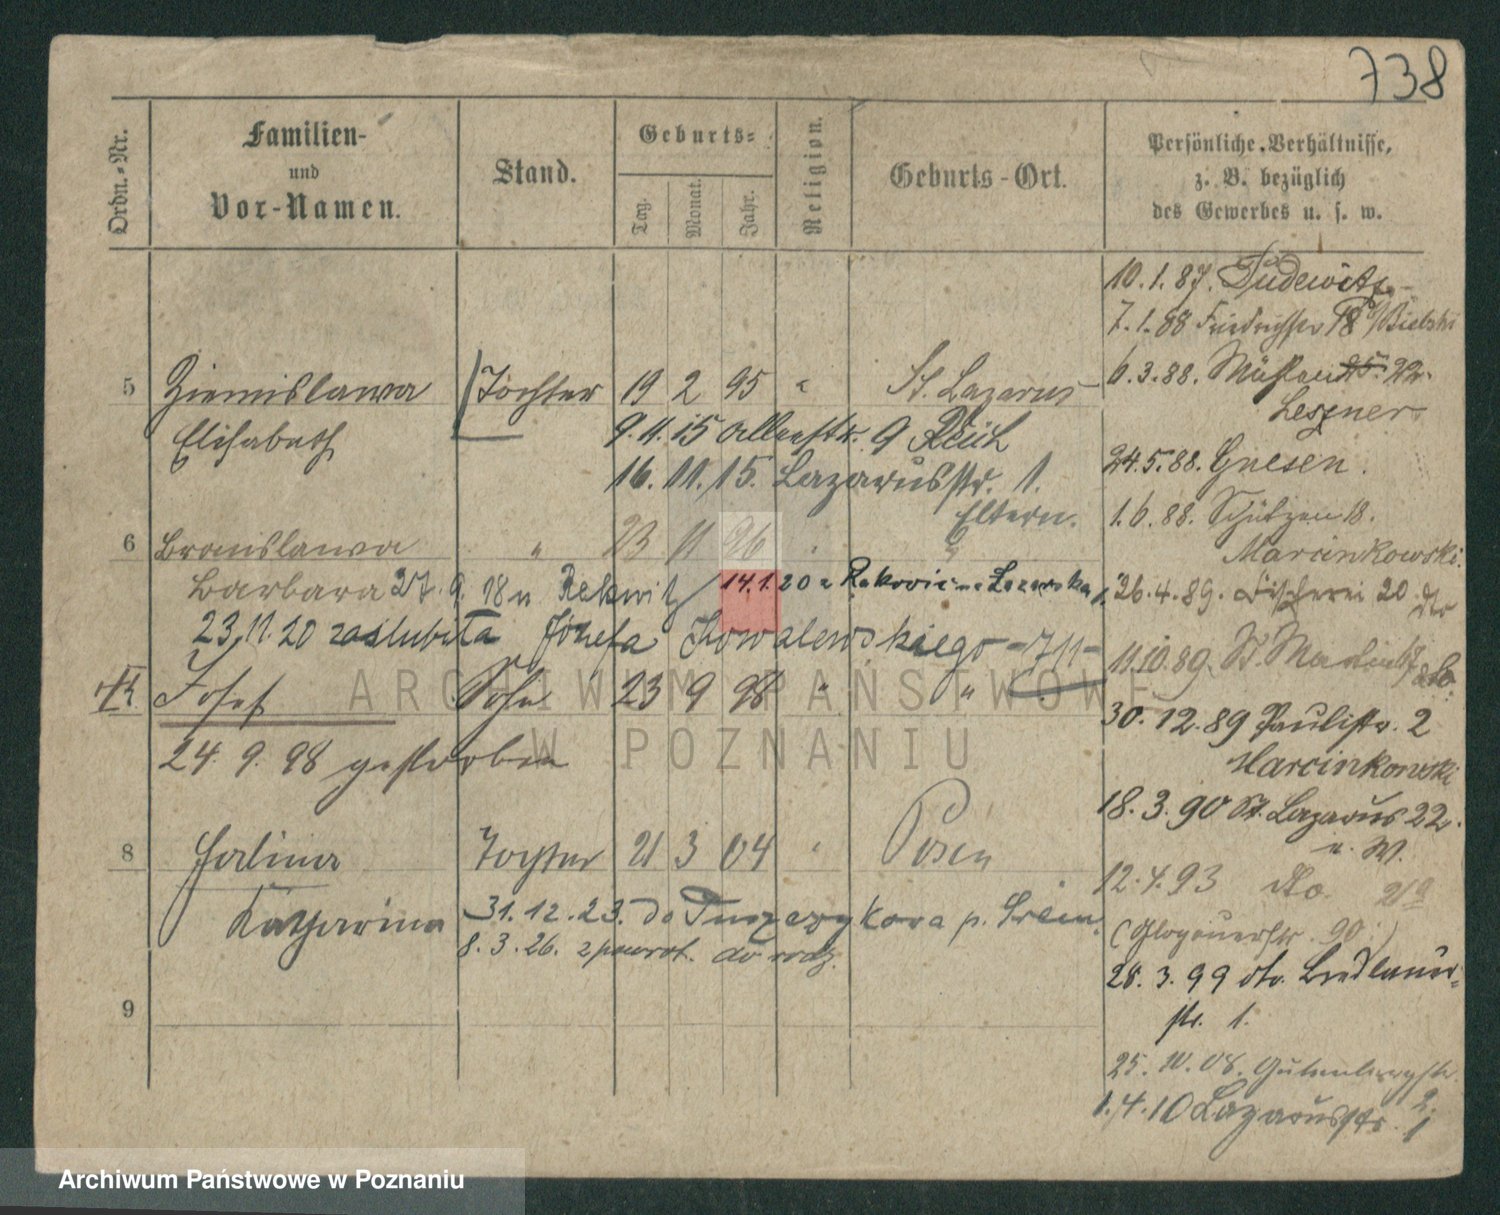 738
Ordn.-Nr.
Familien-
und
Vor-Namen.
Stand.
Geburts-
Tag.
Monat.
Jahr.
Religion.
Geburts-Ort.
Persönliche Verhältnisse,
z. B. bezüglich
des Gewerbes u. s. w.
10.1.87. Pudewitz
7.1.88 18 Bielski
6.3.88. 22.
Leszner
24.5.88. Gnesen.
1.6.88. Schützen 18.
Marcinkowski.
26.4.89. Fischerei 20
11.10.89. St. Martin 67
30.12.89 Paulistr. 2
Marcinkowski
18.3.90 St. Lazarus 22.
12.4.93 dto.
(Glogauerstr. 90.)
28.3.99 dto.
str. 1.
25.10.08. Gutenbergstr.
1.4.10 Lazarusstr. 1
5 Ziemislawa Tochter 19 2 95 " St. Lazarus
Elisabeth 9.11.15 9
16.11.15. Lazarusstr. 1.
Eltern.
6 Bronislawa " 23 11 96 " "
Barbara 27.9.18 14.1.20
23.11.20 zaślubiła Józefa Kowalewskiego - 711 -
Josef Sohn 23 9 98 " "
24.9.98 gestorben
8 Halina Tochter 21 3 04 " Posen
Katharina 31.12.23. do p. Śrem.
8.3.26. z powrot. do rodz.
9
ARCHIWUM PAŃSTWOWE
W POZNANIU
Archiwum Państwowe w Poznaniu